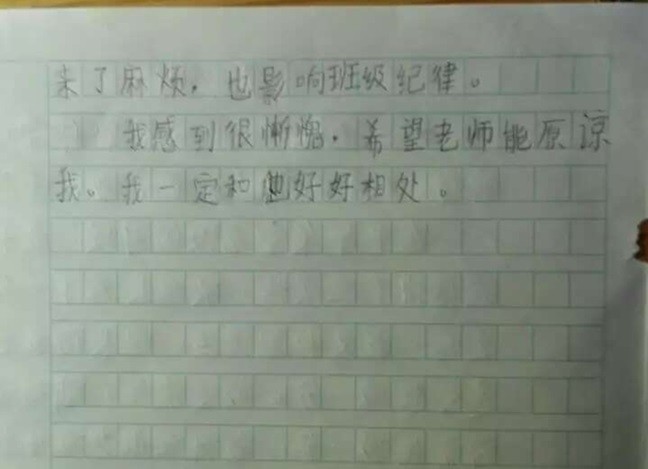 来了麻烦，也影响班级纪律。
我感到很惭愧，希望老师能原谅
我。我一定和他好好相处。